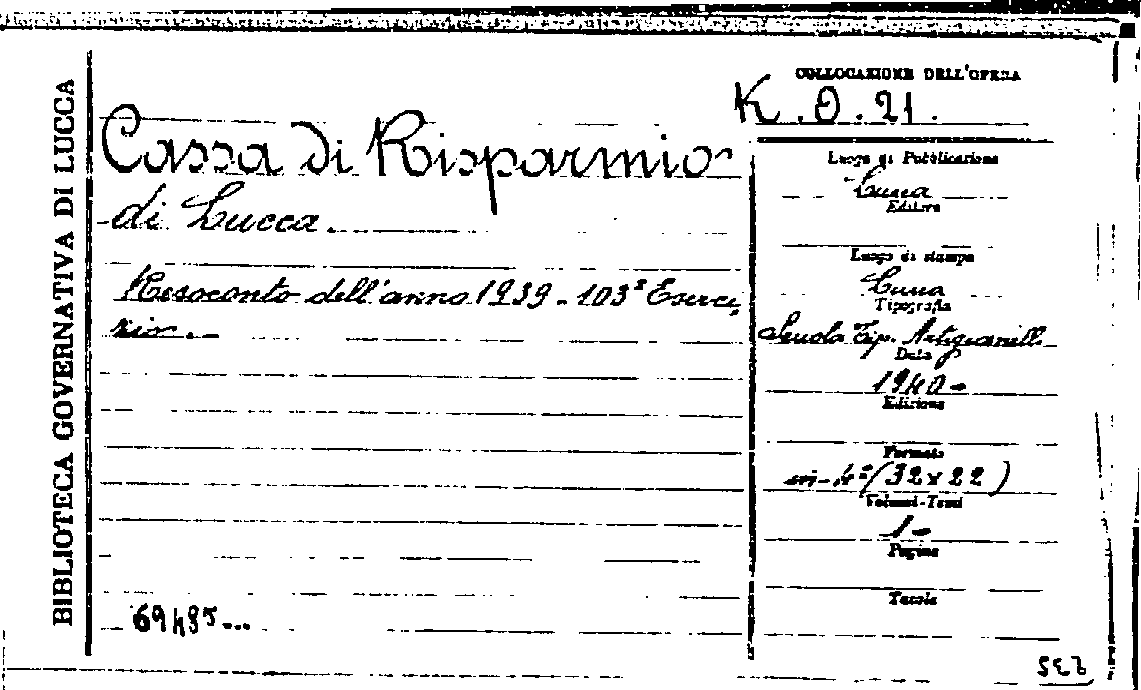 BIBLIOTECA GOVERNATIVA DI LUCCA
COLLOCAZIONE DELL'OPERA
K. O. 21.
Cassa di Risparmio
di Lucca.
Resoconto dell'anno 1939 - 103° Eserci,
zio. -
69485...
Luogo di Pubblicazione
Lucca
Editore
Luogo di stampa
Lucca
Tipografia
Scuola Tip. Artigianelli
Data
1940 -
Edizione
Formato
in-4° (32 x 22)
Volumi-Tomi
1 -
Pagine
Tavole